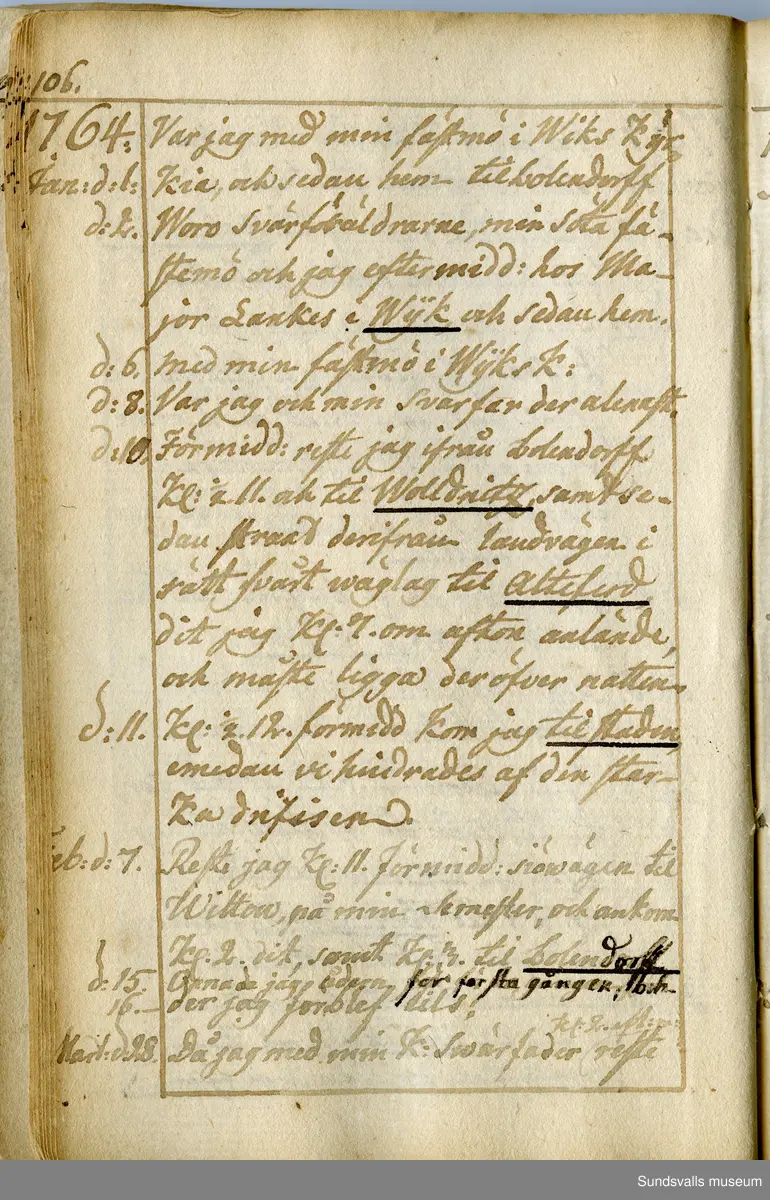 106.
1764: Var jag med min fästmö i Wiks Kyr-
Jan: d: 1: Kia, och sedan hem til Bolendorff
d: 2. Woro svärföräldrarne, min söta fä-
stemö och jag eftermidd: hos Ma-
jor Lankes i Wÿk och sedan hem.
d: 6. med min fästmö i Wÿks K:
d: 8. Var jag och min Svärfar der alenast.
d: 10. Förmidd: reste jag ifrån Bolendorff
Kl: ½ 11. och til Wolldnitz, samt se-
dan straxt derifrån landvägen i
rätt svårt wäglag til Alteferd
dit jag Kl: 7. om afton anlände,
och måste ligga deröfver natten.
d: 11. Kl: ½ 12. förmidd kom jag til staden,
emedan vi hindrades af den star-
ka drifisen.
Feb: d: 7. Reste jag Kl: 11. förmidd: siöwägen til
Wittow, på min Semester, och ankom
Kl. 2. dit, samt Kl. 3. til Bolendorff
d: 15. Öpnade jag ådern för första gången,
16. – der jag förblef tils,
Kl: 2. eft: m:
Mart: d. 28. Då jag med min K: Swärfader reste
Sundsvalls museum